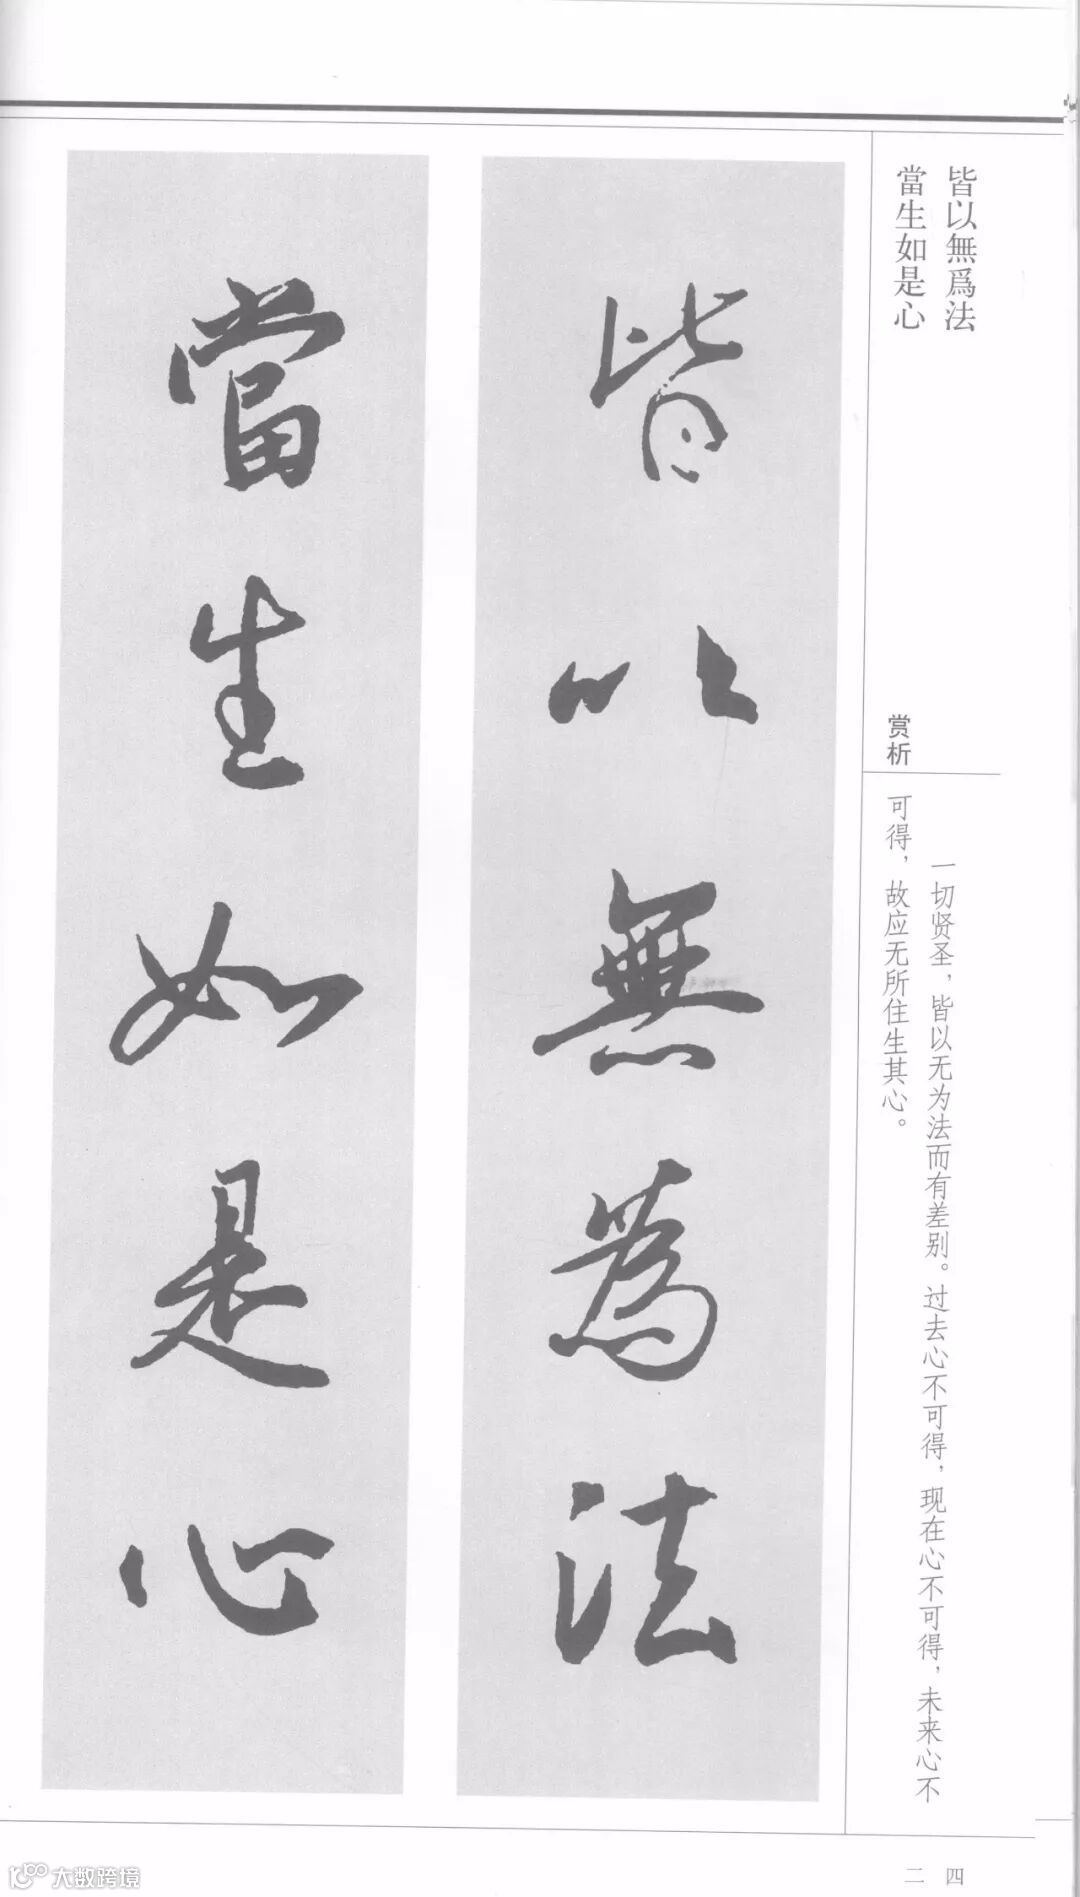 皆以無爲法
當生如是心
赏析
一切贤圣，皆以无为法而有差别。过去心不可得，现在心不可得，未来心不
可得，故应无所住生其心。
皆以無為法
當生如是心
二四
大数跨境